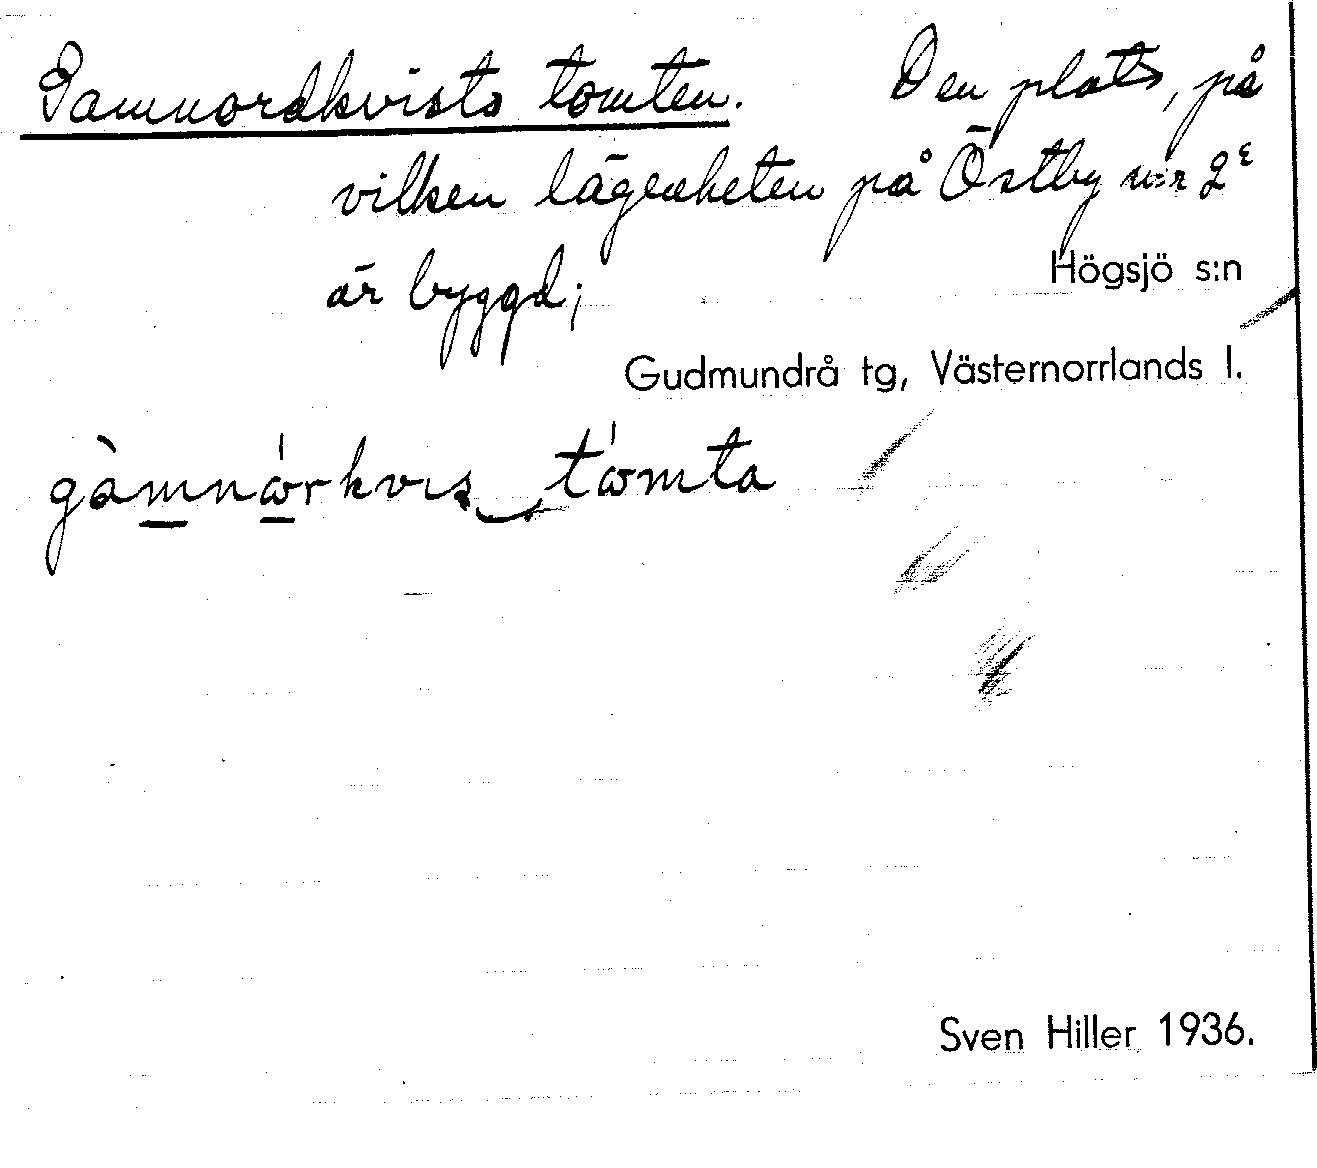 Gamnordkvists tomten. Den plats, på
vilken lägenheten på Östby n:r 2ε
är byggd;
Högsjö s:n
Gudmundrå tg, Västernorrlands l.
gàmnórkvɩs tómta
Sven Hiller 1936.